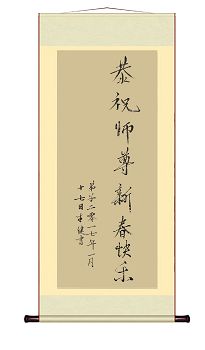 恭祝师尊新春快乐
弟子二零一七年一月
十七日